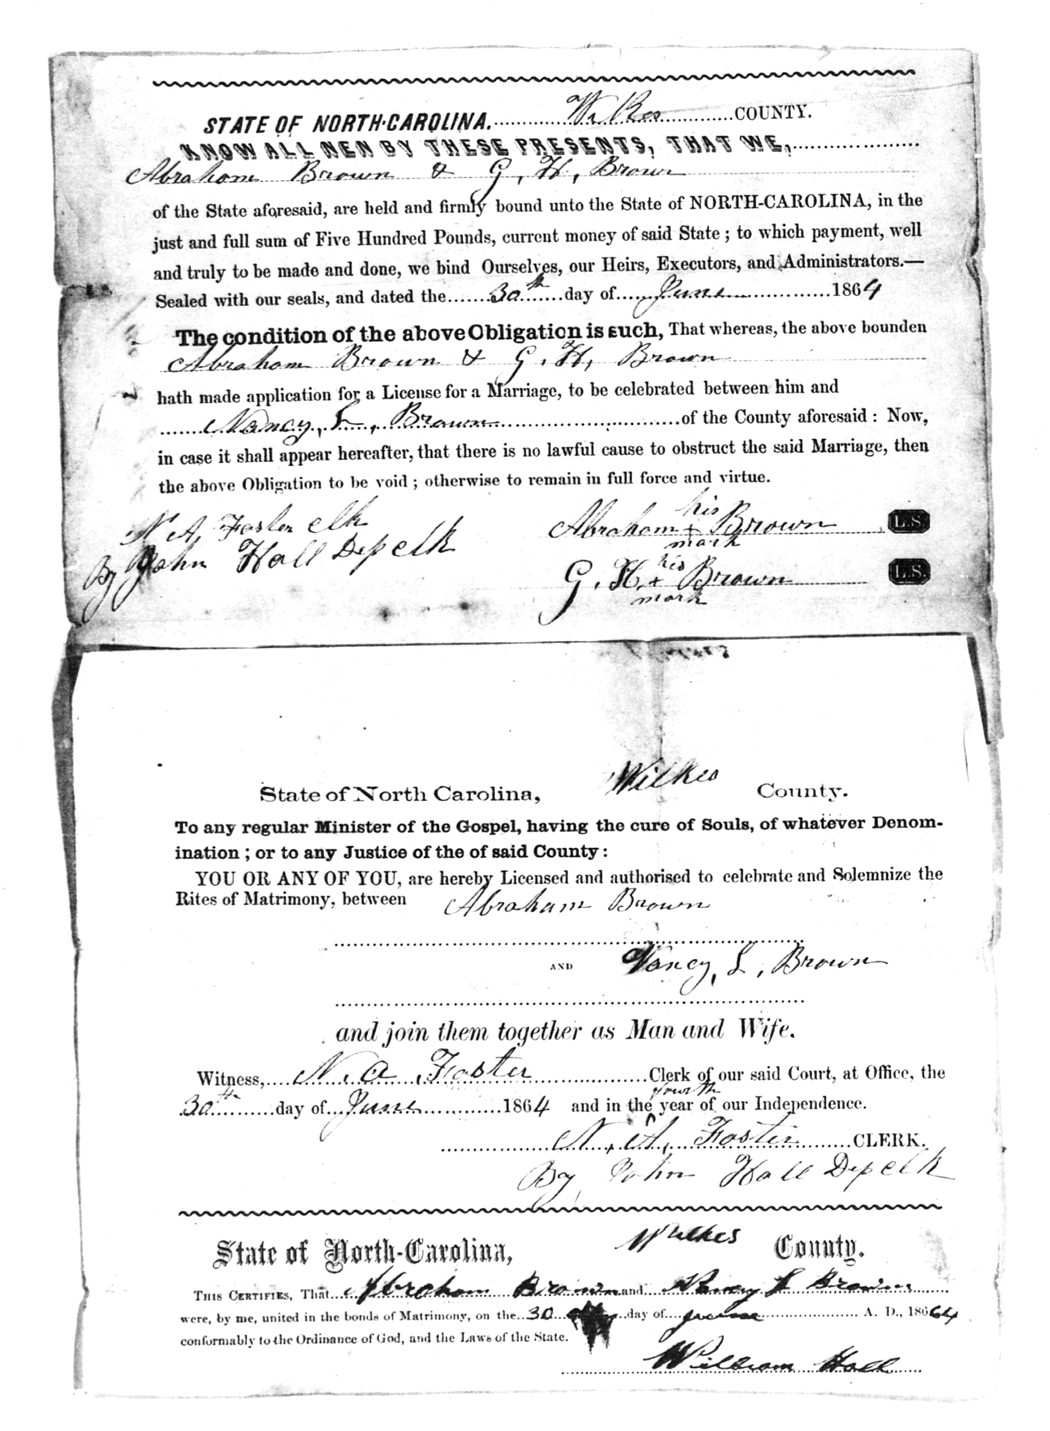 STATE OF NORTH-CAROLINA. Wilkes COUNTY.
KNOW ALL MEN BY THESE PRESENTS, THAT WE,
Abraham Brown & G. H. Brown
of the State aforesaid, are held and firmly bound unto the State of NORTH-CAROLINA, in the
just and full sum of Five Hundred Pounds, current money of said State; to which payment, well
and truly to be made and done, we bind Ourselves, our Heirs, Executors, and Administrators.—
Sealed with our seals, and dated the 30th day of June 1864
The condition of the above Obligation is such, That whereas, the above bounden
Abraham Brown & G. H. Brown
hath made application for a License for a Marriage, to be celebrated between him and
Nancy, L, Brown of the County aforesaid: Now,
in case it shall appear hereafter, that there is no lawful cause to obstruct the said Marriage, then
the above Obligation to be void; otherwise to remain in full force and virtue.
N A, Foster clk
By John Hall Dep clk
his
Abraham + Brown L.S.
mark
his
G. H. + Brown L.S.
mark
State of North Carolina, Wilkes County.
To any regular Minister of the Gospel, having the cure of Souls, of whatever Denom-
ination; or to any Justice of the of said County:
YOU OR ANY OF YOU, are hereby Licensed and authorised to celebrate and Solemnize the
Rites of Matrimony, between Abraham Brown
AND Nancy, L, Brown
and join them together as Man and Wife.
Witness, N. A. Foster Clerk of our said Court, at Office, the
fourth
30th day of June 1864 and in the ^ year of our Independence.
N. A, Foster CLERK.
By John Hall Dep clk
State of North-Carolina, Wilkes County.
THIS CERTIFIES, That Abraham Brown and Nancy L Brown
were, by me, united in the bonds of Matrimony, on the 30 day of June A. D., 18664
conformably to the Ordinance of God, and the Laws of the State.
William Hall